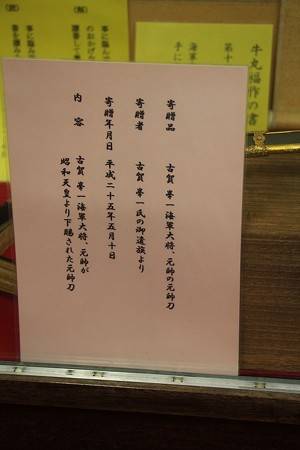 牛丸福作の書
海軍
第十
手に
寄贈品 古賀 峯一海軍大将、元帥の元帥刀
寄贈者 古賀 峯一氏の御遺族より
寄贈年月日 平成二十五年五月十日
内容 古賀 峯一海軍大将、元帥が
昭和天皇より下賜された元帥刀